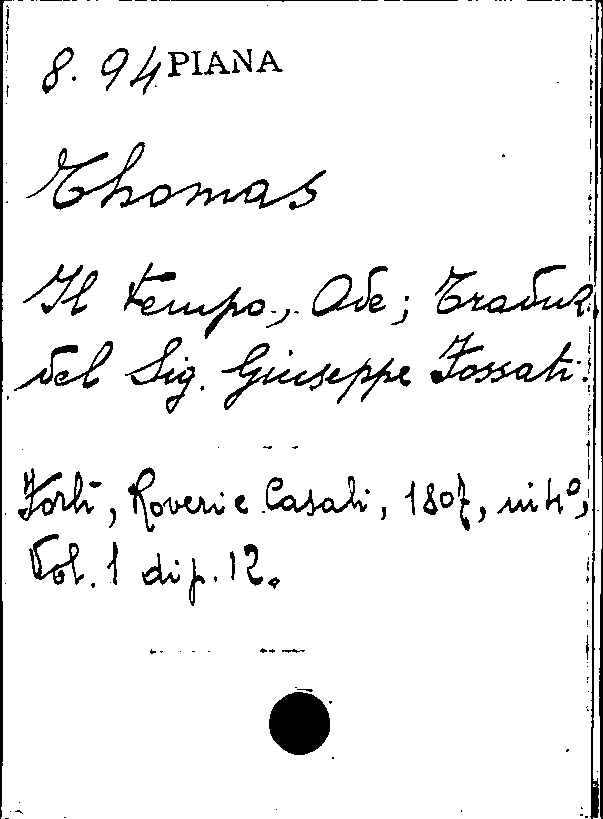 8. 94 PIANA
Thomas
Il tempo, Ode; Traduz.
del Sig. Giuseppe Fossati.
Forlì, Roveri e Casali, 1807, in 4°,
Vol. 1 di p. 12.